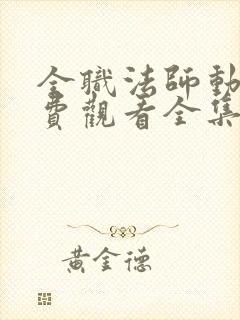 全職法師動
費觀看全集
黃金德